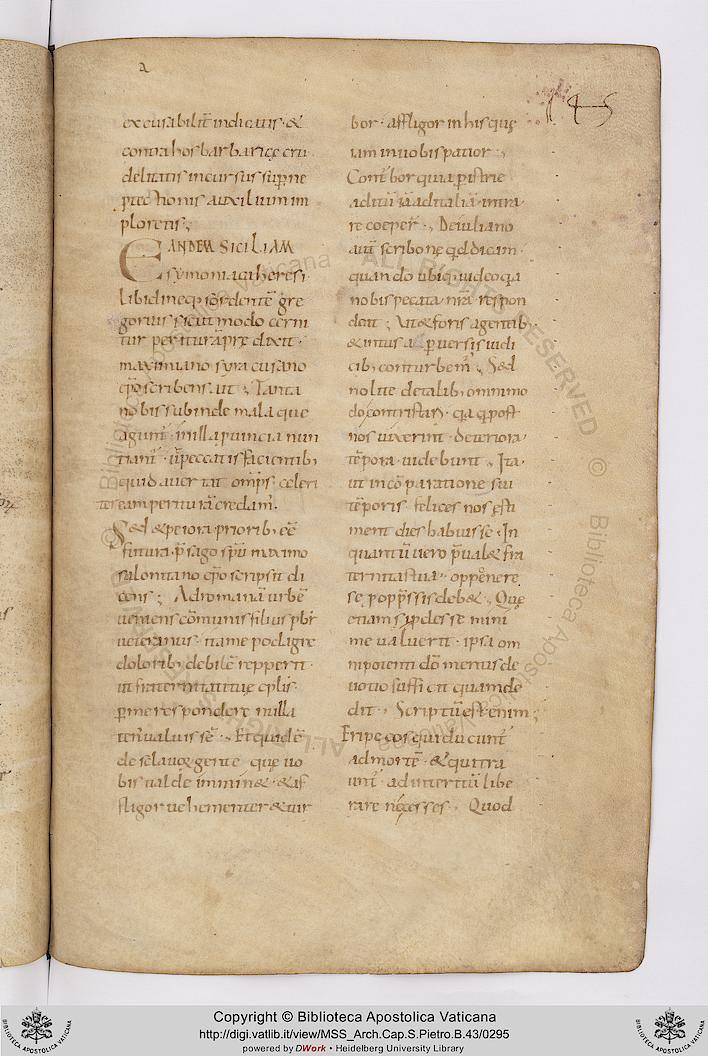 a
145
excusabilit̄ indicatis · &
contra hos barbaricę cru
delitatis incursus sup̄ne
p̄tectionis auxilium im
ploretis;
EANDEM SICILIAM
symoniaci heresi ·
libidineq; sordentē gre
gorius sicut modo cerni
tur perituram p̄dixit ·
maximiano syracusano
ep̄o scribens ut; Tanta
nobis subinde mala que
agunt̄ · in illa p̄uincia nun
tiant̄ · ut peccatis facientib;
quid auertat om̄ps celeri
ter eam perituram credam̄ ·
Sed & peiora priorib; eē
futura p̄sago sp̄u maximo
salonitano ep̄o scripsit di
cens; Ad romanā urbē
ueniens cōmunis filius pbr̄
ueteranus · ita me podagrę
dolorib; debilē repperit ·
ut fraternitatis tuę ep̄lis ·
p̄ me respondere nulla
ten' ualuissē · Et quidē
de sclauoꝝ gente quę uo
bis ualde imminet · & af
fligor uehementer & tur
bor · affligor in his quę
iam in uobis patior;
Cont̄bor quia p̄ istrię
aditū iā ad italiā intra
re coeper̄; De iuliano
aut̄ scribone qd dicam ·
quando ubiq; uideo qa
nobis peccata nr̄a respon
dent; Ut & foris a gentib;
& intus a p̄uersis iudi
cib; conturbem̄; Sed
nolite de talib; omnimo
do contristari · qa qui post
nos uixerint · deteriora
tēpora uidebunt; Ita ·
ut in cōparatione sui
tēporis felices nos ęsti
ment dies habuisse · In
quantū uero p̄ualet fra
ternitas tua · opponere
se p̄opp̄ssis debet; Quę
etiam si p̄desse mini
me ualuerit · ipsa om
nipotenti dō mentis de
uotio sufficit quam de
dit; Scriptū est enim;
Eripe eos qui ducunt̄
ad mortē · & qui tra
unt̄ · ad interitū libe
rare ne cesses · Quod
Copyright © Biblioteca Apostolica Vaticana
http://digi.vatlib.it/view/MSS_Arch.Cap.S.Pietro.B.43/0295
powered by DWork • Heidelberg University Library